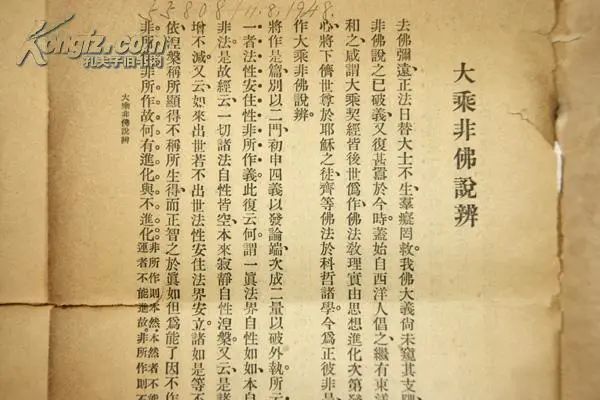 大乘非佛說辨
去佛彌遠、正法日替、大士不生、羣癡罔救、我佛大義、尙未窺其支
非佛說之已破義、又復甚囂於今時。蓋始自西洋人倡之、繼有東洋
和之、咸謂大乘契經皆後世僞作、佛法敎理實由思想進化次第發
心、將下儕世尊於耶穌之徒、齊等佛法於科哲諸學、今爲正彼非是
作大乘非佛說辨。
將作是篇、別以二門、初申四義以發論端、次成二量以破外執、所云
一者法性安住性非所作義。此復云何、謂一眞法界自性如如、本自
非法、是故經云、一切諸法自性皆空、本來寂靜、自性涅槃。又云、是諸
增不減。又云、如來出世若不出世、法性安住、法界安立、諸如是等不
依湼槃稱所顯得不稱所生得、而正智之於眞如但爲能了因、不作
非所作故、何有進化與不進化。
非所作則本然、本然者不能
運者不能進故。非所作則不
大乘非佛說辨
11.8.1948.
孔夫子旧书网